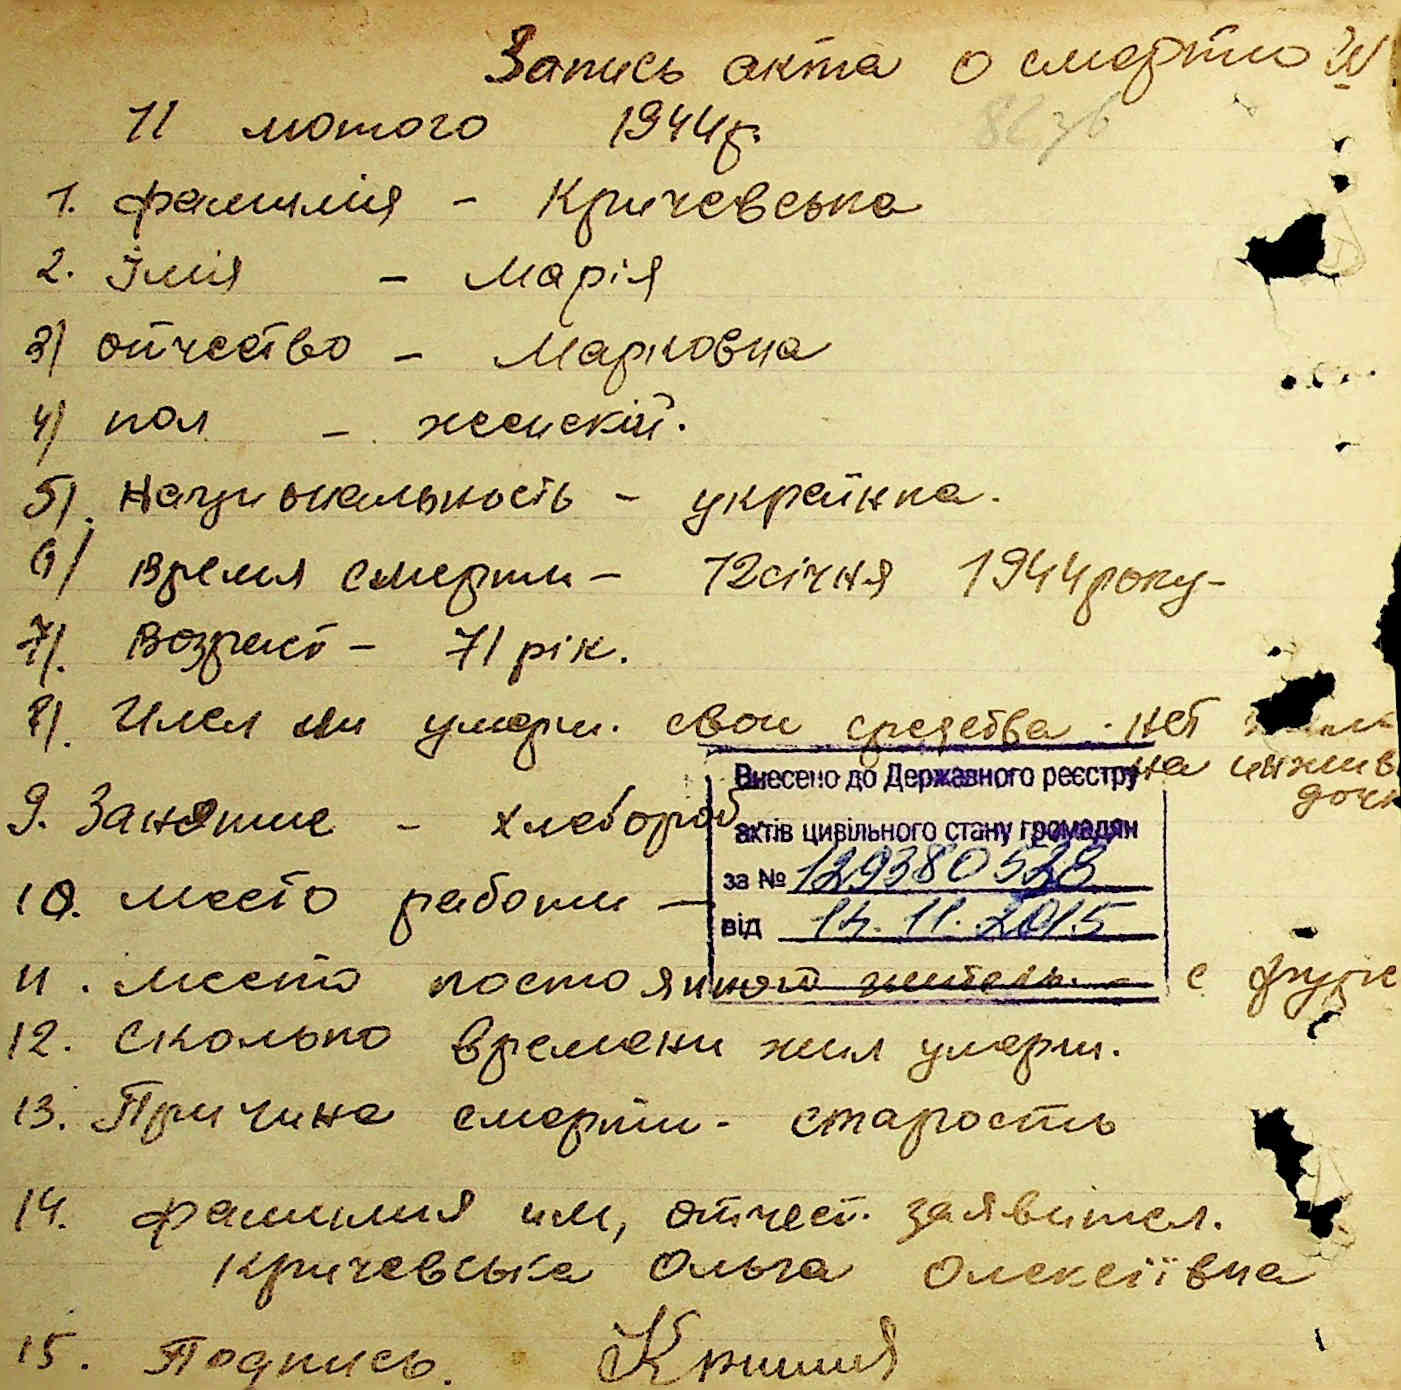 Запись акта о смерти №
11 лютого 1944р.
1. фамилия - Кричевська
2. Імія - Марія
3) отчество - Марковна
4) пол - женскій.
5). Национальность - українка.
6) Время смерти - 12 січня 1944 року -
7). Возраст - 71 рік.
8). Имел ли умерш. свои средства. нет
на иждив
дочк
Внесено до Державного реєстру
актів цивільного стану громадян
за № 129380528
від 14.11.2015
9. Занятие - хлебороб
10. место работи -
11. место постоянного жительс. - с
12. Сколько времени жил умерш.
13. Причина смерти - старость
14. фамилия им, отчест. заявител.
Кричевська Ольга Олексіївна
15. Подпись.